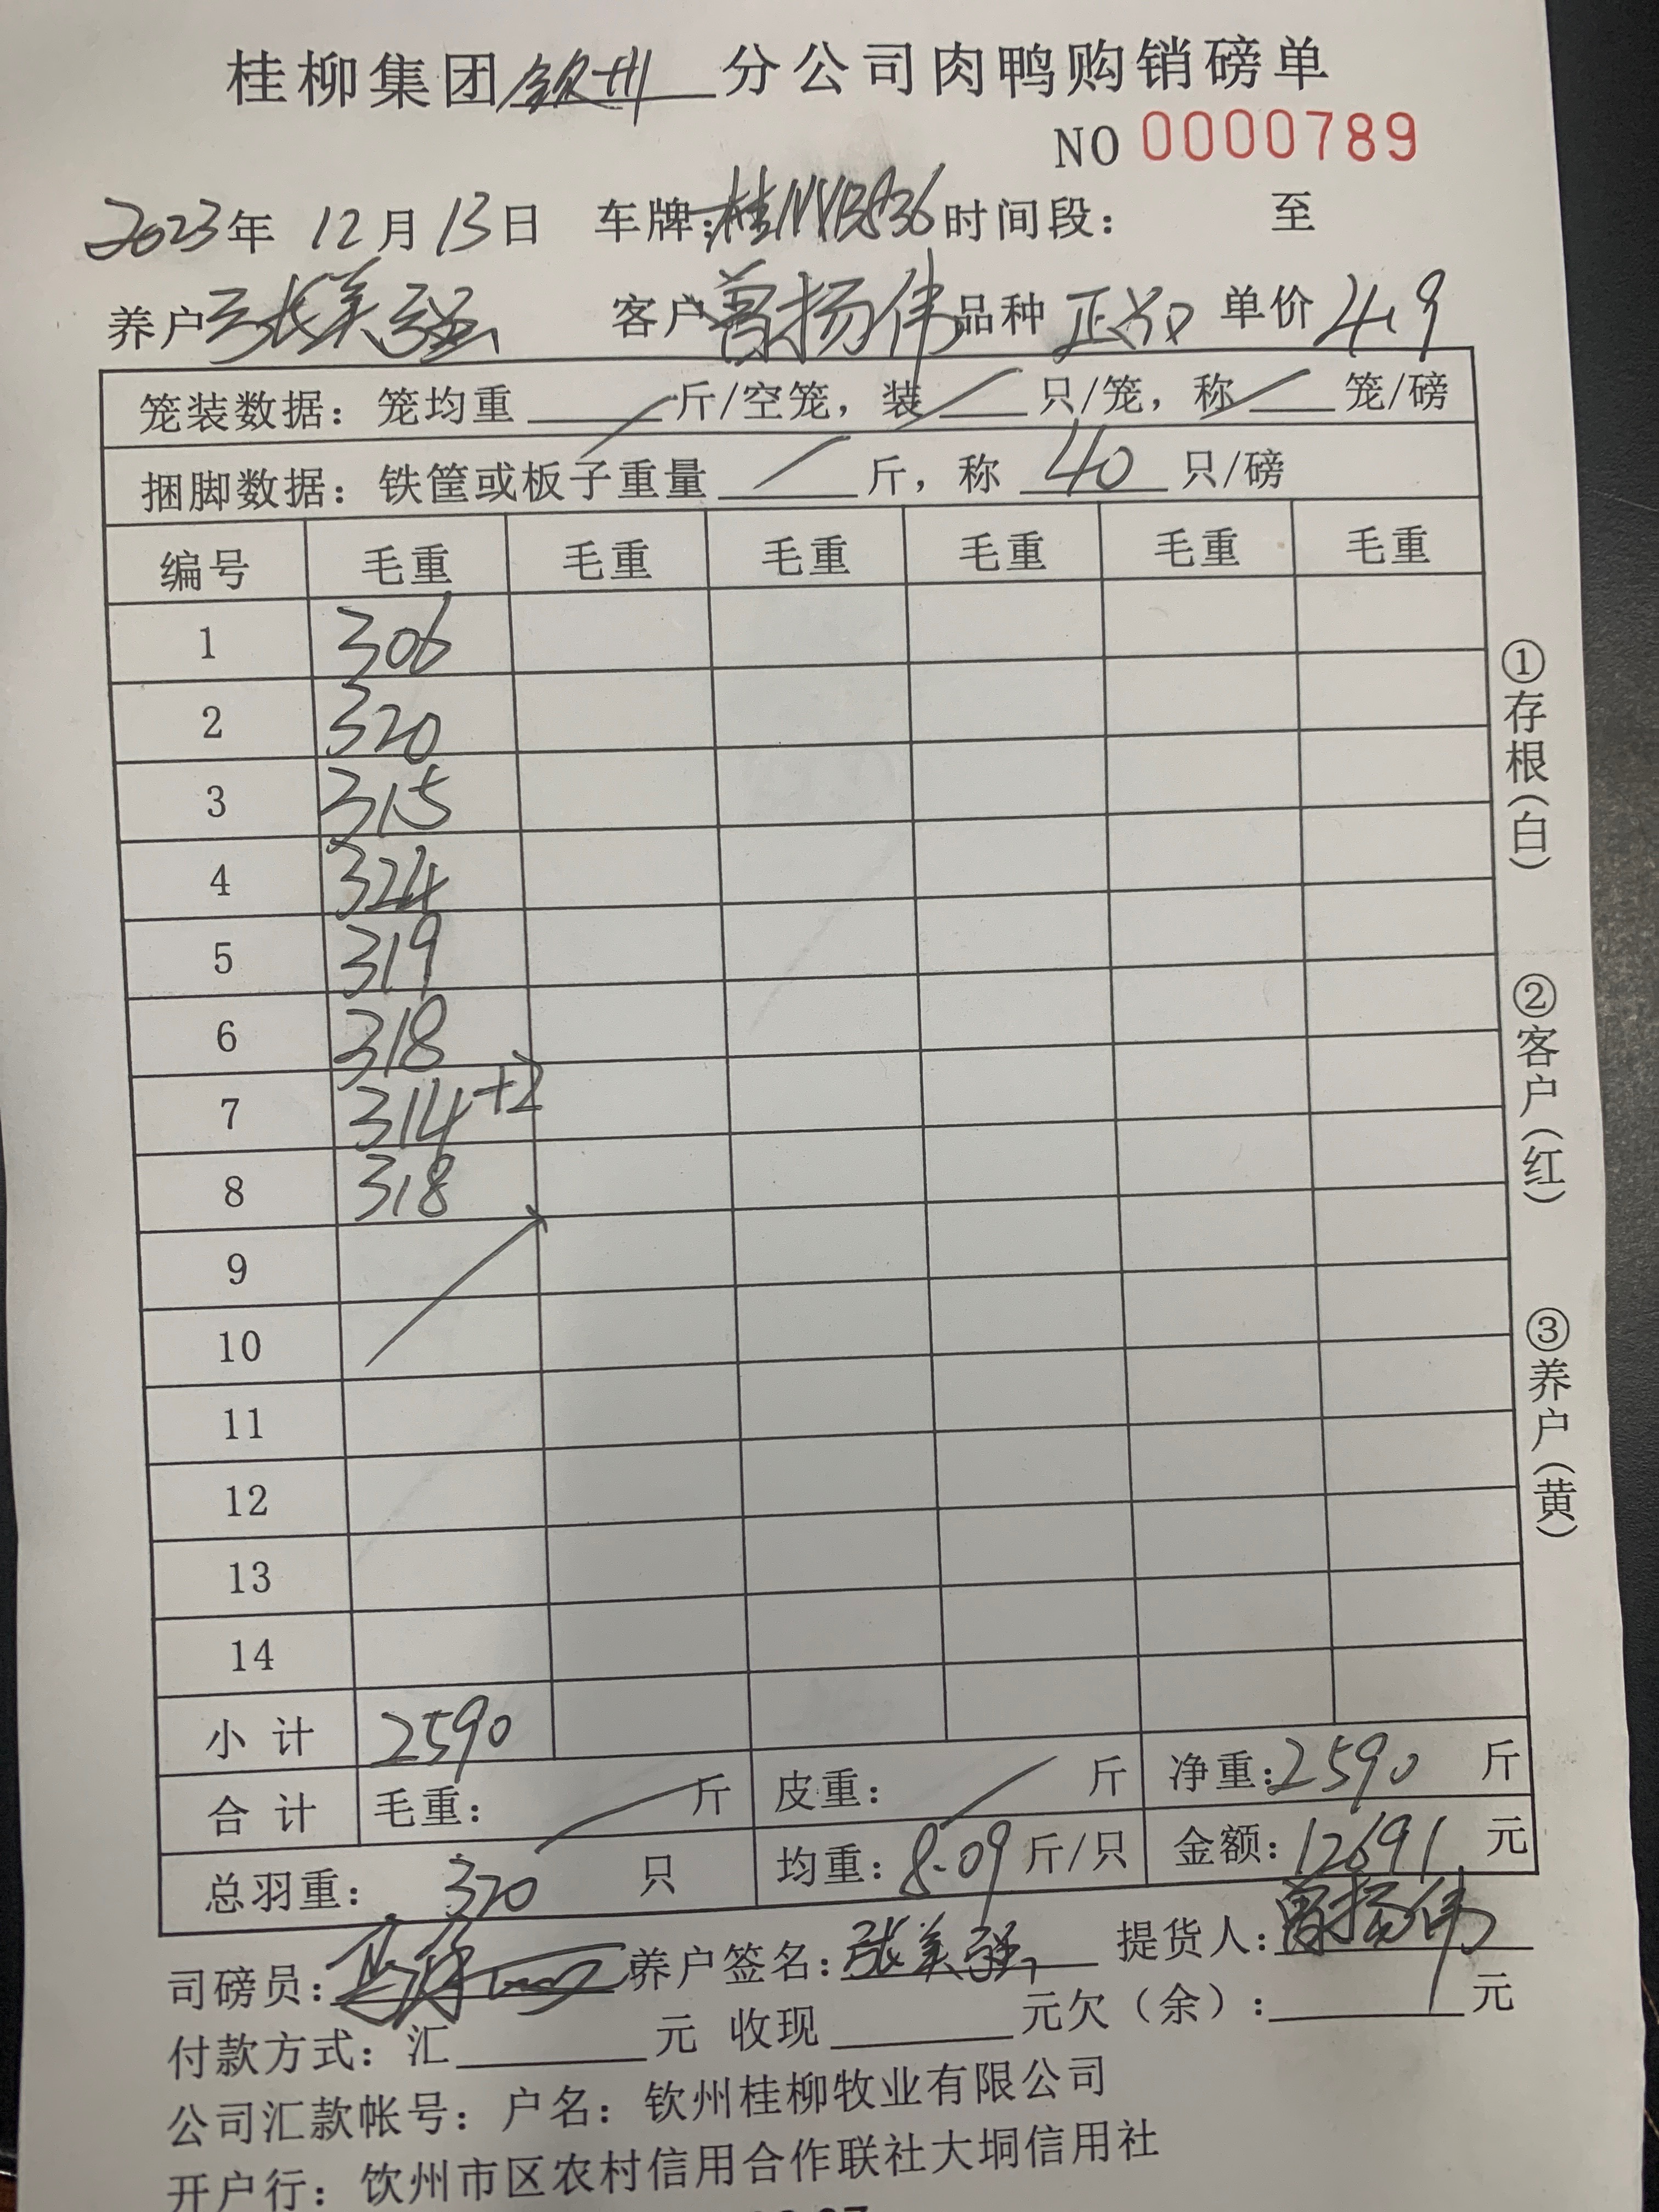 桂柳集团钦州分公司肉鸭购销磅单
NO 0000789
2023年 12月13日 车牌:桂 时间段: 至
养户 张美强 客户 曾扬伟 品种 正 单价 4.9
笼装数据: 笼均重 / 斤/空笼, 装 / 只/笼, 称 / 笼/磅
捆脚数据: 铁筐或板子重量 / 斤, 称 40 只/磅
编号 毛重 毛重 毛重 毛重 毛重 毛重
1 306
2 320
3 315
4 324
5 319
6 318
7 314+2
8 318
9
10
11
12
13
14
小计 2590
合计 毛重: / 斤 皮重: / 斤 净重:2590 斤
总羽重: 320 只 均重: 8.09 斤/只 金额:12691 元
司磅员: 养户签名:张美强 提货人:曾扬伟
付款方式: 汇 元 收现 元欠(余): 元
公司汇款帐号: 户名: 钦州桂柳牧业有限公司
开户行: 钦州市区农村信用合作联社大垌信用社
①存根(白)
②客户(红)
③养户(黄)